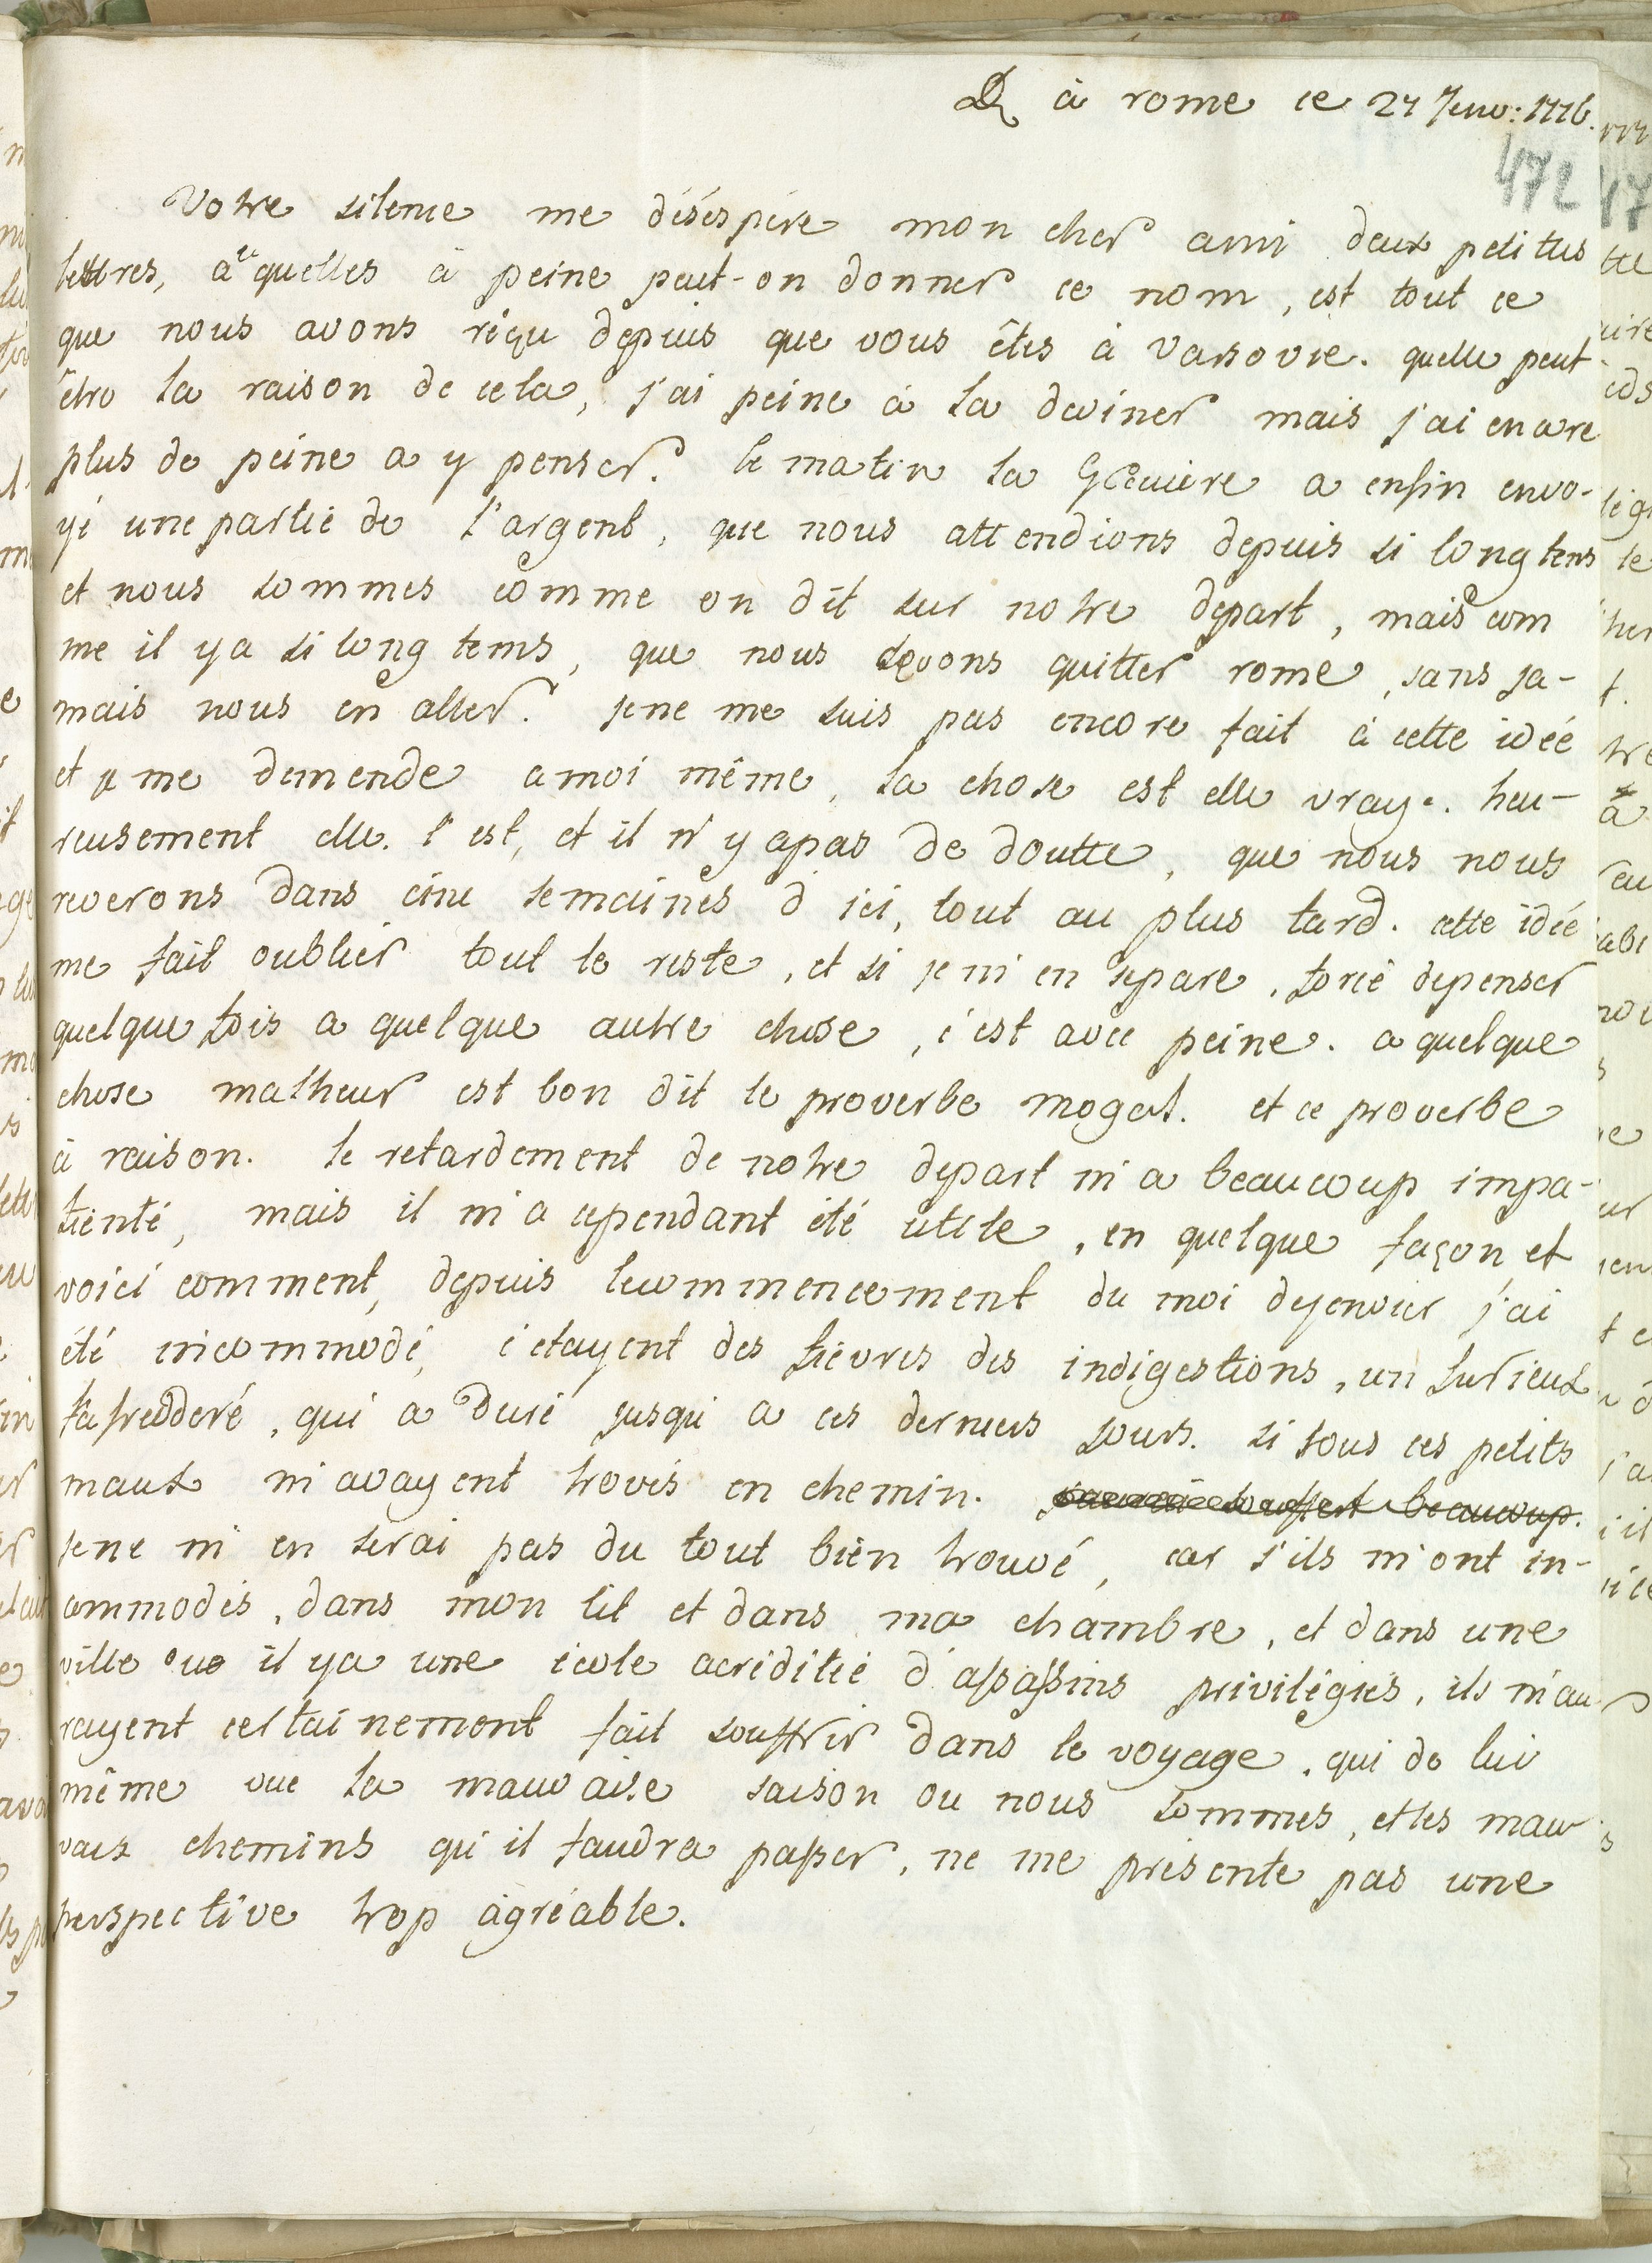 à rome ce 27 Jenv: 1776.
472
Votre silence me désespére mon cher ami deux petites
lettres, à quelles à peine peut-on donner ce nom, est tout ce
que nous avons réçu depuis que vous êtes à Varsovie. quelle peut
être la raison de cela, j'ai peine à la deviner mais j'ai encore
plus de peine a y penser. le matin la a enfin envo-
yé une partie de l'argent, que nous attendions depuis si long tems
et nous sommes comme on dit sur notre depart, mais com
me il y a si long tems, que nous devons quitter rome, sans ja-
mais nous en aller. je ne me suis pas encore fait à cette idée
et je me demende a moi même, la chose est elle vraye. heu-
reusement elle l'est, et il n'y a pas de doutte, que nous nous
reverons dans cinc semaines d'ici, tout au plus tard. cette idée
me fait oublier tout le reste, et si je m'en separe, forcé de penser
quelque fois a quelque autre chose, c'est avec peine. a quelque
chose malheur est bon dit le proverbe mogol. et ce proverbe
à raison. le retardement de notre depart m'a beaucoup impa-
tienté, mais il m'a cependant été utile, en quelque façon, et
voici comment, depuis le commencement du moi de jenvier j'ai
été incommodé, c'etayent des fievres des indigestions, un furieux
rafreddoré, qui a duré jusqu'a ces derniers jours. si tous ces petits
maux m'avayent trovés en chemin. souffert beaucoup.
je ne m'en serai pas du tout bien trouvé, car s'ils m'ont in-
commodés, dans mon lit et dans ma chambre, et dans une
ville ou il y a une école acréditée d'assassins priviligiés, ils m'au
rayent certainement fait souffrir dans le voyage, qui de lui
même vue la mauvaise saison ou nous sommes, et les mau
vais chemins qu'il faudra passer, ne me présente pas une
perspective trop agréable.